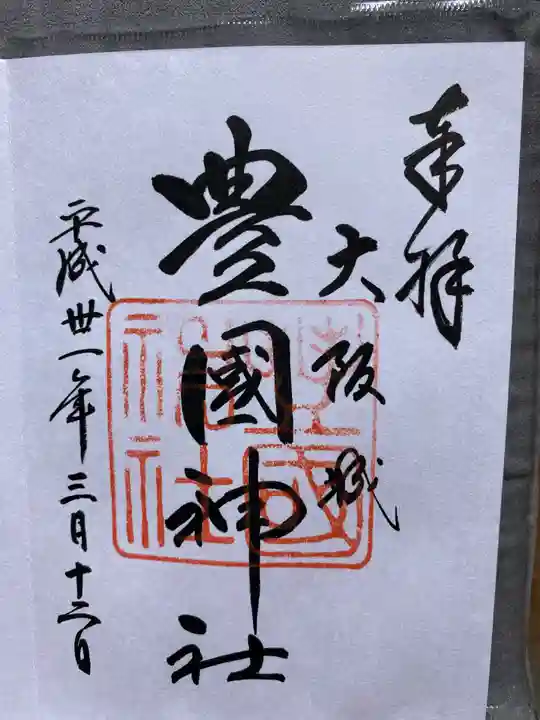 奉拝
大阪城
豊國神社
平成丗一年三月十二日
豊國神社